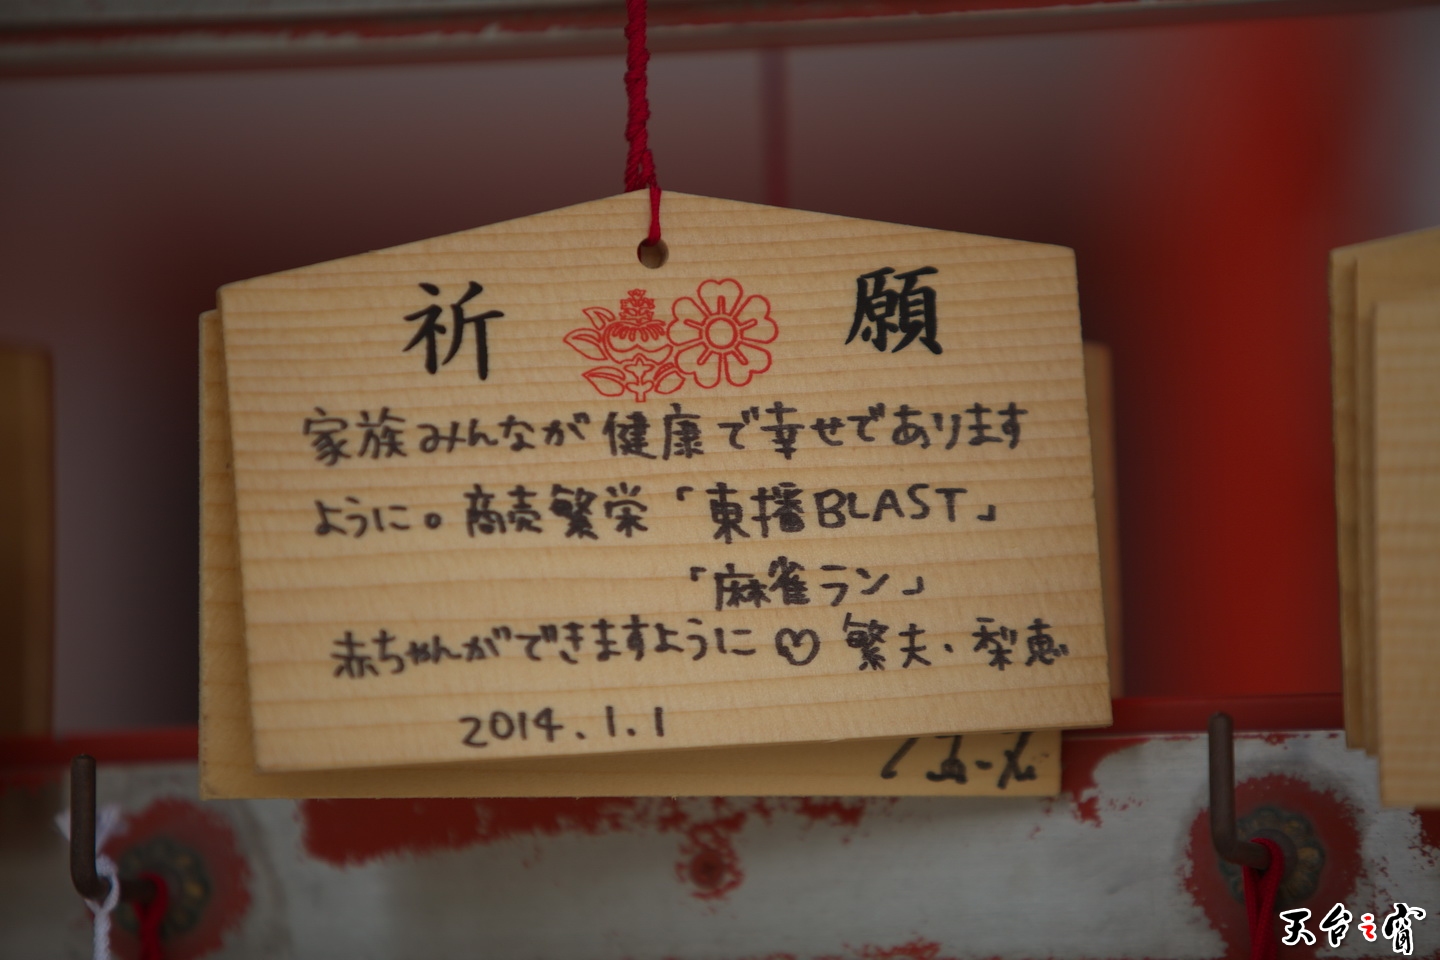 祈 願
家族みんなが健康で幸せであります
ように。商売繁栄「東播BLAST」
「麻雀ラン」
赤ちゃんができますように♡ 繁夫・梨恵
2014.1.1
天台之宵